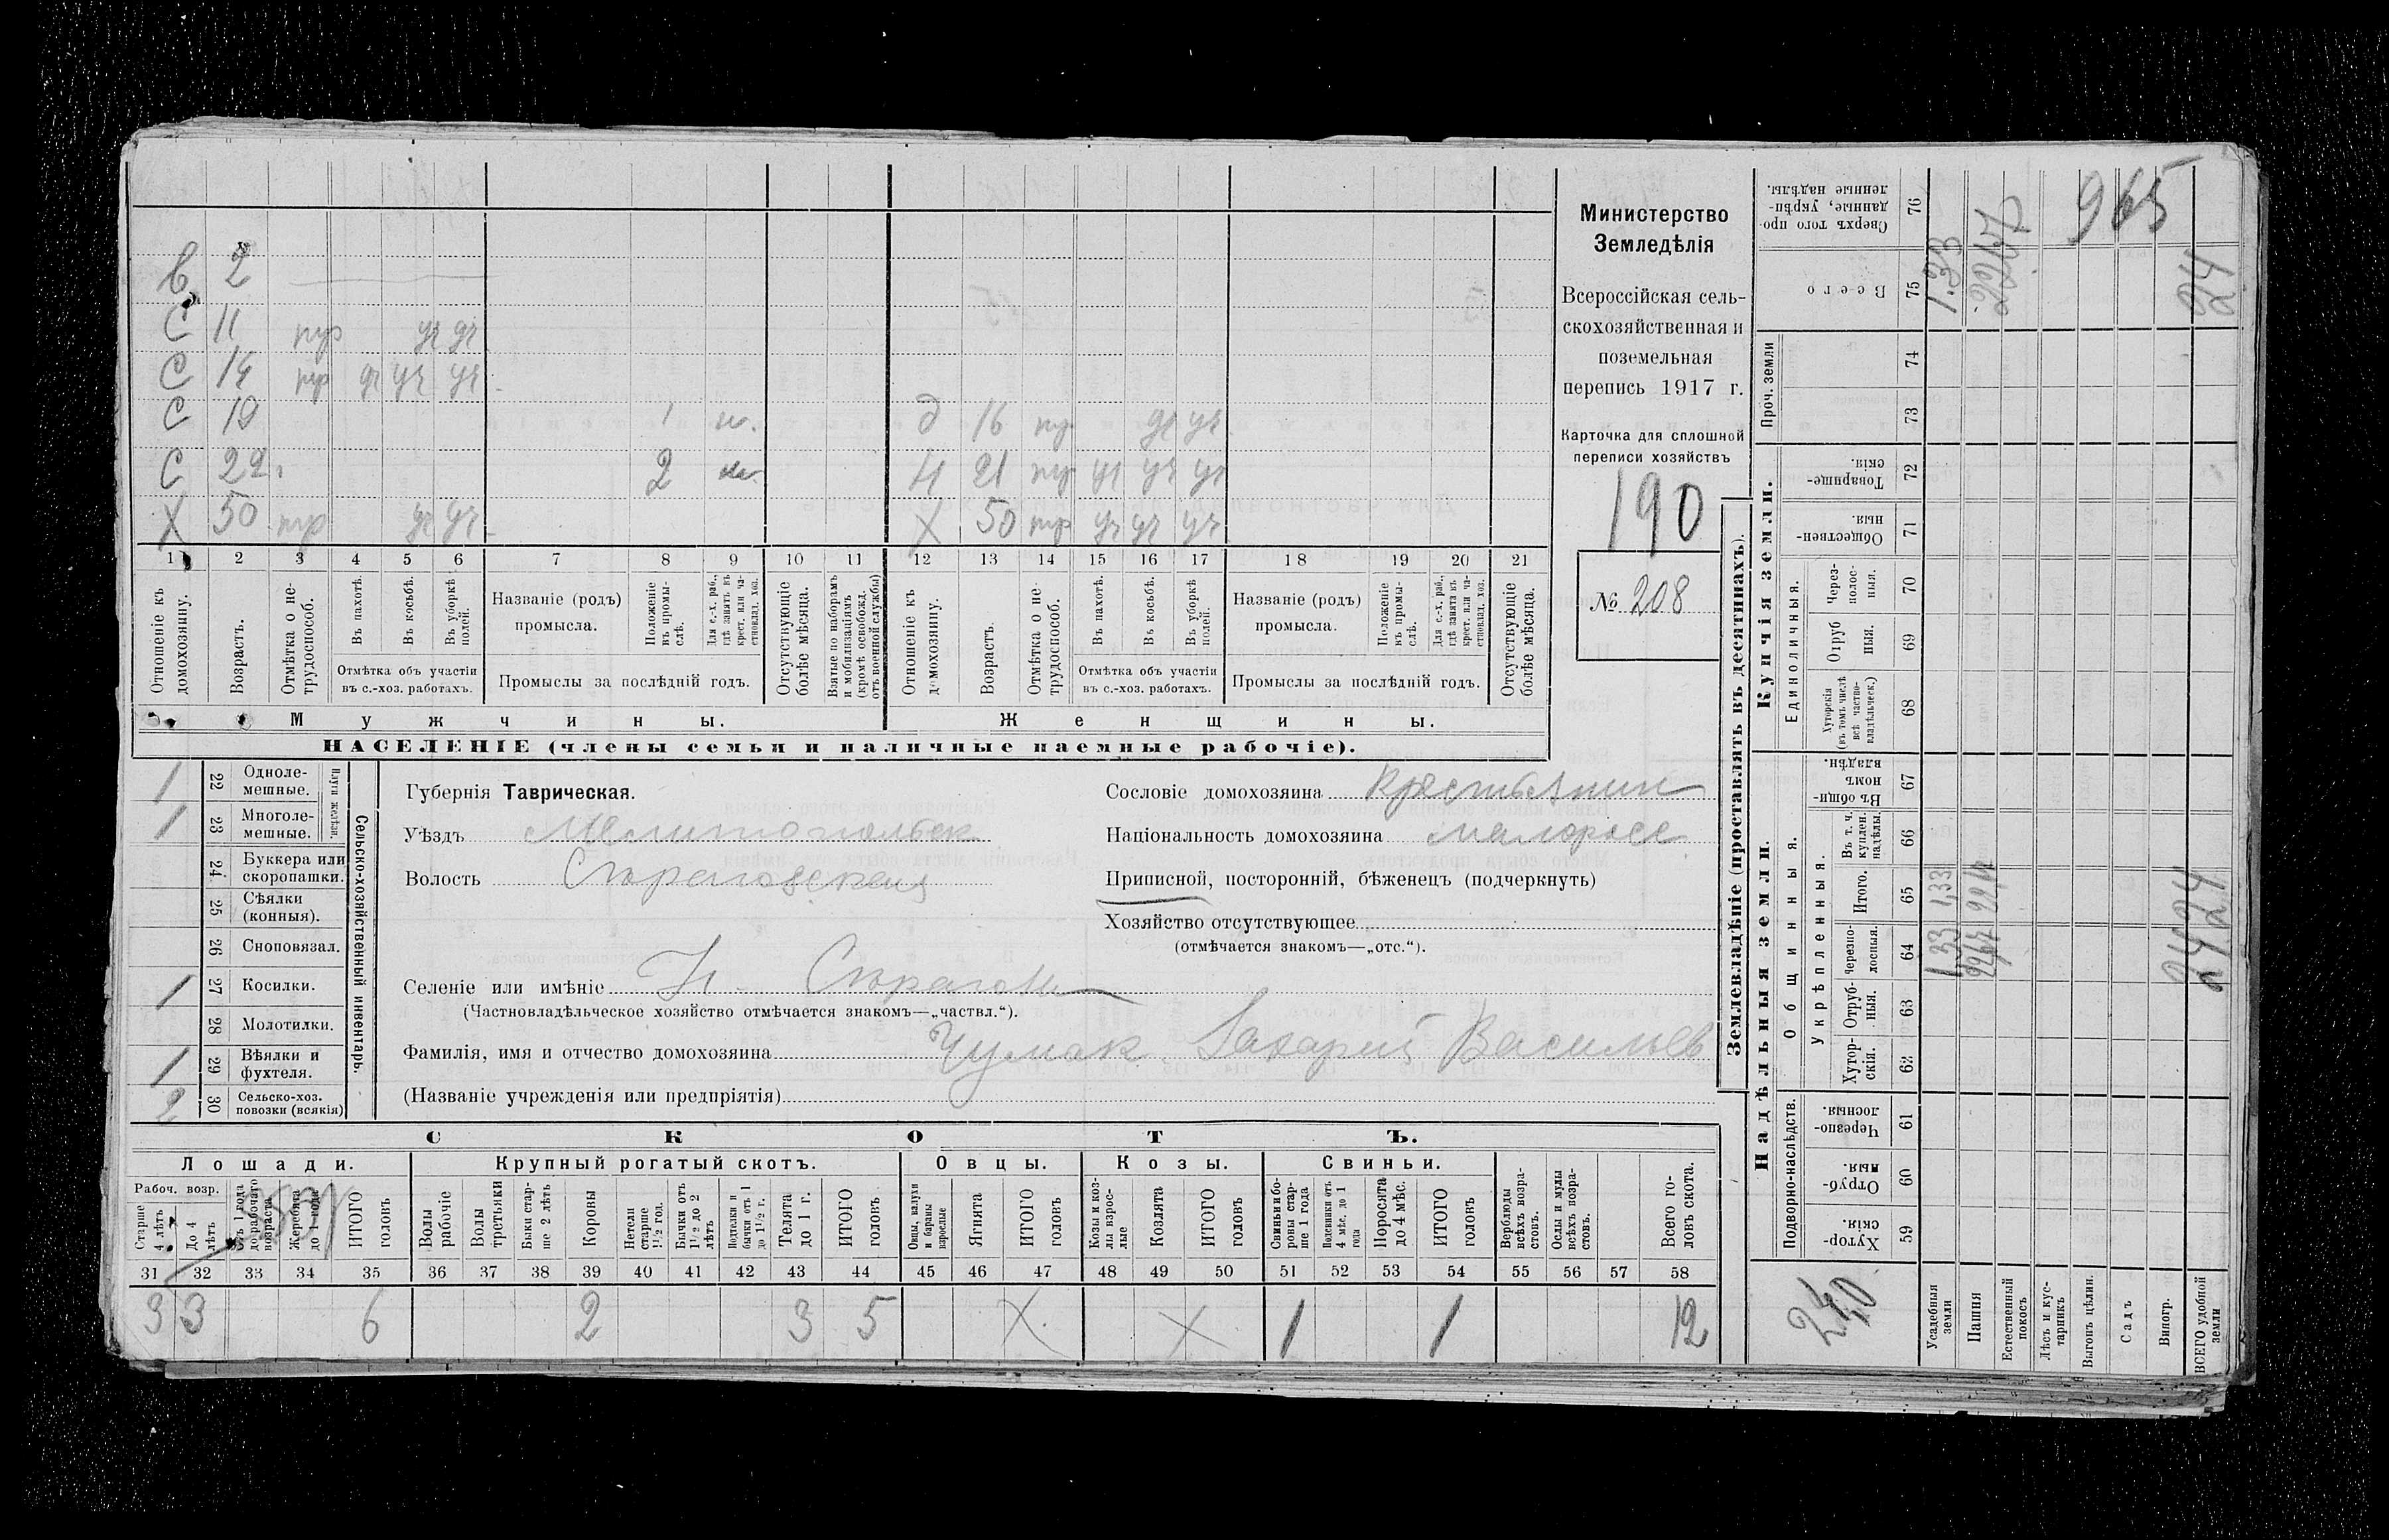 в 2
С 11 пр уч уч
С 14 пр уч уч уч
С 19 1 д 16 пр уч уч
С 22 2 Н 21 пр уч уч уч
Х 50 пр уч уч Х 50 пр уч уч уч
1 2 3 4 5 6 7 8 9 10 11 12 13 14 15 16 17 18 19 20 21
Отношеніе къ домохозяину.
Возрастъ.
Отмѣтка о не-трудоспособ.
Въ пахотѣ.
Въ косьбѣ.
Въ уборкѣ полей.
Отмѣтка объ участіи въ с.-хоз. работахъ.
Названіе (родъ) промысла.
Положеніе къ промы-слѣ.
Для с.-х. раб., гдѣ занятъ въ крест. или ча-стновлад. хоз.
Промыслы за послѣдній годъ.
Отсутствующіе болѣе мѣсяца.
Взятые по наборамъ и мобилизаціямъ (кромѣ освобожд. отъ военной службы)
Отношеніе къ домохозяину.
Возрастъ.
Отмѣтка о не-трудоспособ.
Въ пахотѣ.
Въ косьбѣ.
Въ уборкѣ полей.
Отмѣтка объ участіи въ с.-хоз. работахъ.
Названіе (родъ) промысла.
Положеніе къ промы-слѣ.
Для с.-х. раб., гдѣ занята въ крест. или ча-стновлад. хоз.
Промыслы за послѣдній годъ.
Отсутствующіе болѣе мѣсяца.
Мужчины. Женщины.
НАСЕЛЕНІЕ (члены семьи и наличные наемные рабочіе).
Министерство
Земледѣлія
Всероссійская сель-
скохозяйственная и
поземельная
перепись 1917 г.
Карточка для сплошной
переписи хозяйствъ
190
№ 208
Сельско-хозяйственный инвентарь.
Плуги желѣзн.
1 22 Одноле-мешные.
1 23 Многоле-мешные.
24 Буккера или скоропашки.
25 Сѣялки (конныя).
26 Сноповязал.
1 27 Косилки.
28 Молотилки.
1 29 Вѣялки и фухтеля.
2 30 Сельско-хоз. повозки (всякія)
Губернія Таврическая.
Уѣздъ Мелитопольск
Волость Строгавская
Сословіе домохозяина Крестьянин
Національность домохозяина малоросс
Приписной, посторонній, бѣженецъ (подчеркнуть)
Хозяйство отсутствующее
(отмѣчается знакомъ—„отс.“).
Селеніе или имѣніе
(Частновладѣльческое хозяйство отмѣчается знакомъ—„частвл.“).
Фамилія, имя и отчество домохозяина Чумак Захарий Васильев
(Названіе учрежденія или предпріятія)
СКОТЪ.
Лошади. Крупный рогатый скотъ. Овцы. Козы. Свиньи.
Рабоч. возр.
Старше 4 лѣтъ
До 4 лѣтъ
Отъ 1 года до рабочаго возраста
Жеребята до 1 года
ИТОГО головъ
Волы рабочіе
Волы третьяки
Быки стар-ше 2 лѣтъ
Коровы
Нетели старше 1½ год.
Бычки отъ 1½ до 2 лѣтъ
Подтелки и бычки отъ 1 до 1½ г.
Телята до 1 г.
ИТОГО головъ
Овцы, валухи и бараны взрослые
Ягнята
ИТОГО головъ
Козы и коз-лы взрос-лые
Козлята
ИТОГО головъ
Свиньи и бо-ровы стар-ше 1 года
Подсвинки отъ 4 мѣс. до 1 года
Поросята до 4 мѣс.
ИТОГО головъ
Верблюды всѣхъ возра-стовъ.
Ослы и мулы всѣхъ возра-стовъ.
Всего го-ловъ скота.
31 32 33 34 35 36 37 38 39 40 41 42 43 44 45 46 47 48 49 50 51 52 53 54 55 56 57 58
3 3 6 2 3 5 Х Х 1 1 12
Землевладѣніе (проставлять въ десятинахъ).
Надѣльныя земли. Купчія земли. Проч. земли
Подворно-наслѣдств.
Общинныя.
Укрѣпленныя.
Единоличныя.
Хутор-скія. 59
Отруб-ныя. 60
Черезпо-лосныя. 61
Хутор-скія. 62
Отруб-ныя. 63
Черезпо-лосныя. 64
Итого. 65
Въ т. ч. куплен. надѣлы. 66
Въ общи-номъ владѣн. 67
Хуторскія (въ томъ числѣ всѣ частно-владѣльческ.) 68
Отруб ныя. 69
Через-полос-ныя. 70
Обществен-ныя. 71
Товарище-скія. 72
73
74
Всего 75
Сверхъ того про-данные, укрѣп-ленные надѣлы. 76
Усадебныя земли 1,33 1,33 1.33
Пашня 2267
Естественный покосъ
Лѣсъ и кус-тарникъ
Выгонъ цѣлин.
Садъ
Виногр.
ВСЕГО удобной земли 24 24 24
965